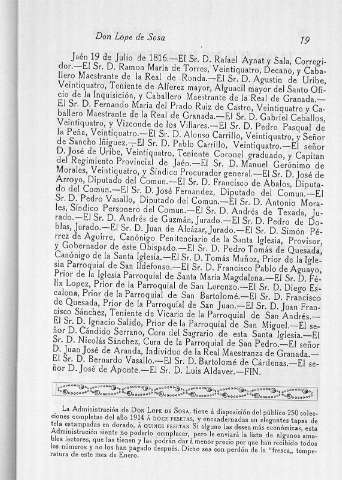 Don Lope de Sosa 19
Jaén 19 de Julio de 1816.—El Sr. D. Rafael Aynat y Sala, Corregi-
dor.—El Sr. D. Ramón María de Torres, Veintiquatro, Decano, y Caba-
llero Maestrante de la Real de Ronda.—El Sr. D. Agustin de Uribe,
Veintiquatro, Teniente de Alferez mayor, Alguacil mayor del Santo Ofi-
cio de la Inquisición, y Caballero Maestrante de la Real de Granada.—
El Sr. D. Fernando María del Prado Ruiz de Castro, Veintiquatro y Ca-
ballero Maestrante de la Real de Granada.—El Sr. D. Gabriel Ceballos,
Veintiquatro, y Vizconde de los Villares.—El Sr. D. Pedro Pasqual de
la Peña, Veintiquatro.—El Sr. D. Alonso Carrillo, Veintiquatro, y Señor
de Sancho Iñiguez.—El Sr. D. Pablo Carrillo, Veintiquatro.—El señor
D. José de Uribe, Veintiquatro, Teniente Coronel graduado, y Capitan
del Regimiento Provincial de Jaén.—El Sr. D. Manuel Gerónimo de
Morales, Veintiquatro, y Síndico Procurador general.—El Sr. D. José de
Arroyo, Diputado del Comun.—El Sr. D. Francisco de Abalos, Diputa-
do del Comun.—El Sr. D. José Fernandez, Diputado del Comun.—El
Sr. D. Pedro Vasallo, Diputado del Comun.—El Sr. D. Antonio Mora-
les, Síndico Personero del Comun.—El Sr. D. Andrés de Texada, Ju-
rado.—El Sr. D. Andrés de Guzmán, Jurado.—El Sr. D. Pedro de Do-
blas, Jurado.—El Sr. D. Juan de Alcázar, Jurado.—El Sr. D. Simón Pé-
rrez de Aguirre, Canónigo Penitenciario de la Santa Iglesia, Provisor,
y Gobernador de este Obispado.—El Sr. D. Pedro Tomás de Quesada,
Canónigo de la Santa Iglesia.—El Sr. D. Tomás Muñoz, Prior de la Igle-
sia Parroquial de San Ildefonso.—El Sr. D. Francisco Pablo de Aguayo,
Prior de la Iglesia Parroquial de Santa María Magdalena.—El Sr. D. Fé-
lix Lopez, Prior de la Parroquial de San Lorenzo.—El Sr. D. Diego Es-
calona, Prior de la Parroquial de San Bartolomé.—El Sr. D. Francisco
de Quesada, Prior de la Parroquial de San Juan.—El Sr. D. Juan Fran-
cisco Sánchez, Teniente de Vicario de la Parroquial de San Andrés.—
El Sr. D. Ignacio Salido, Prior de la Parroquial de San Miguel.—El se-
ñor D. Cándido Serrano, Cura del Sagrario de esta Santa Iglesia.—El
Sr. D. Nicolás Sánchez, Cura de la Parroquial de San Pedro.—El señor
D. Juan José de Aranda, Individuo de la Real Maestranza de Granada.—
El Sr. D. Bernardo Vasallo.—El Sr. D. Bartolomé de Cárdenas.—El se-
ñor D. José de Aponte.—El Sr. D. Luis Aldaver.—FIN.
La Administración de DON LOPE DE SOSA, tiene á disposición del público 250 colec-
ciones completas del año 1914 á DOCE PESETAS, y encuadernadas en elegantes tapas de
tela estampadas en dorado, á QUINCE PESETAS. Si alguno las desea más económicas, esta
Administración siente no poderlo complacer, pero le enviará la lista de algunos ama-
bles lectores, que las tienen y las podrán dar á menor precio por que han recibido todos
los números y no los han pagado después. Dicho sea con perdón de la "fresca„ tempe-
ratura de este mes de Enero.